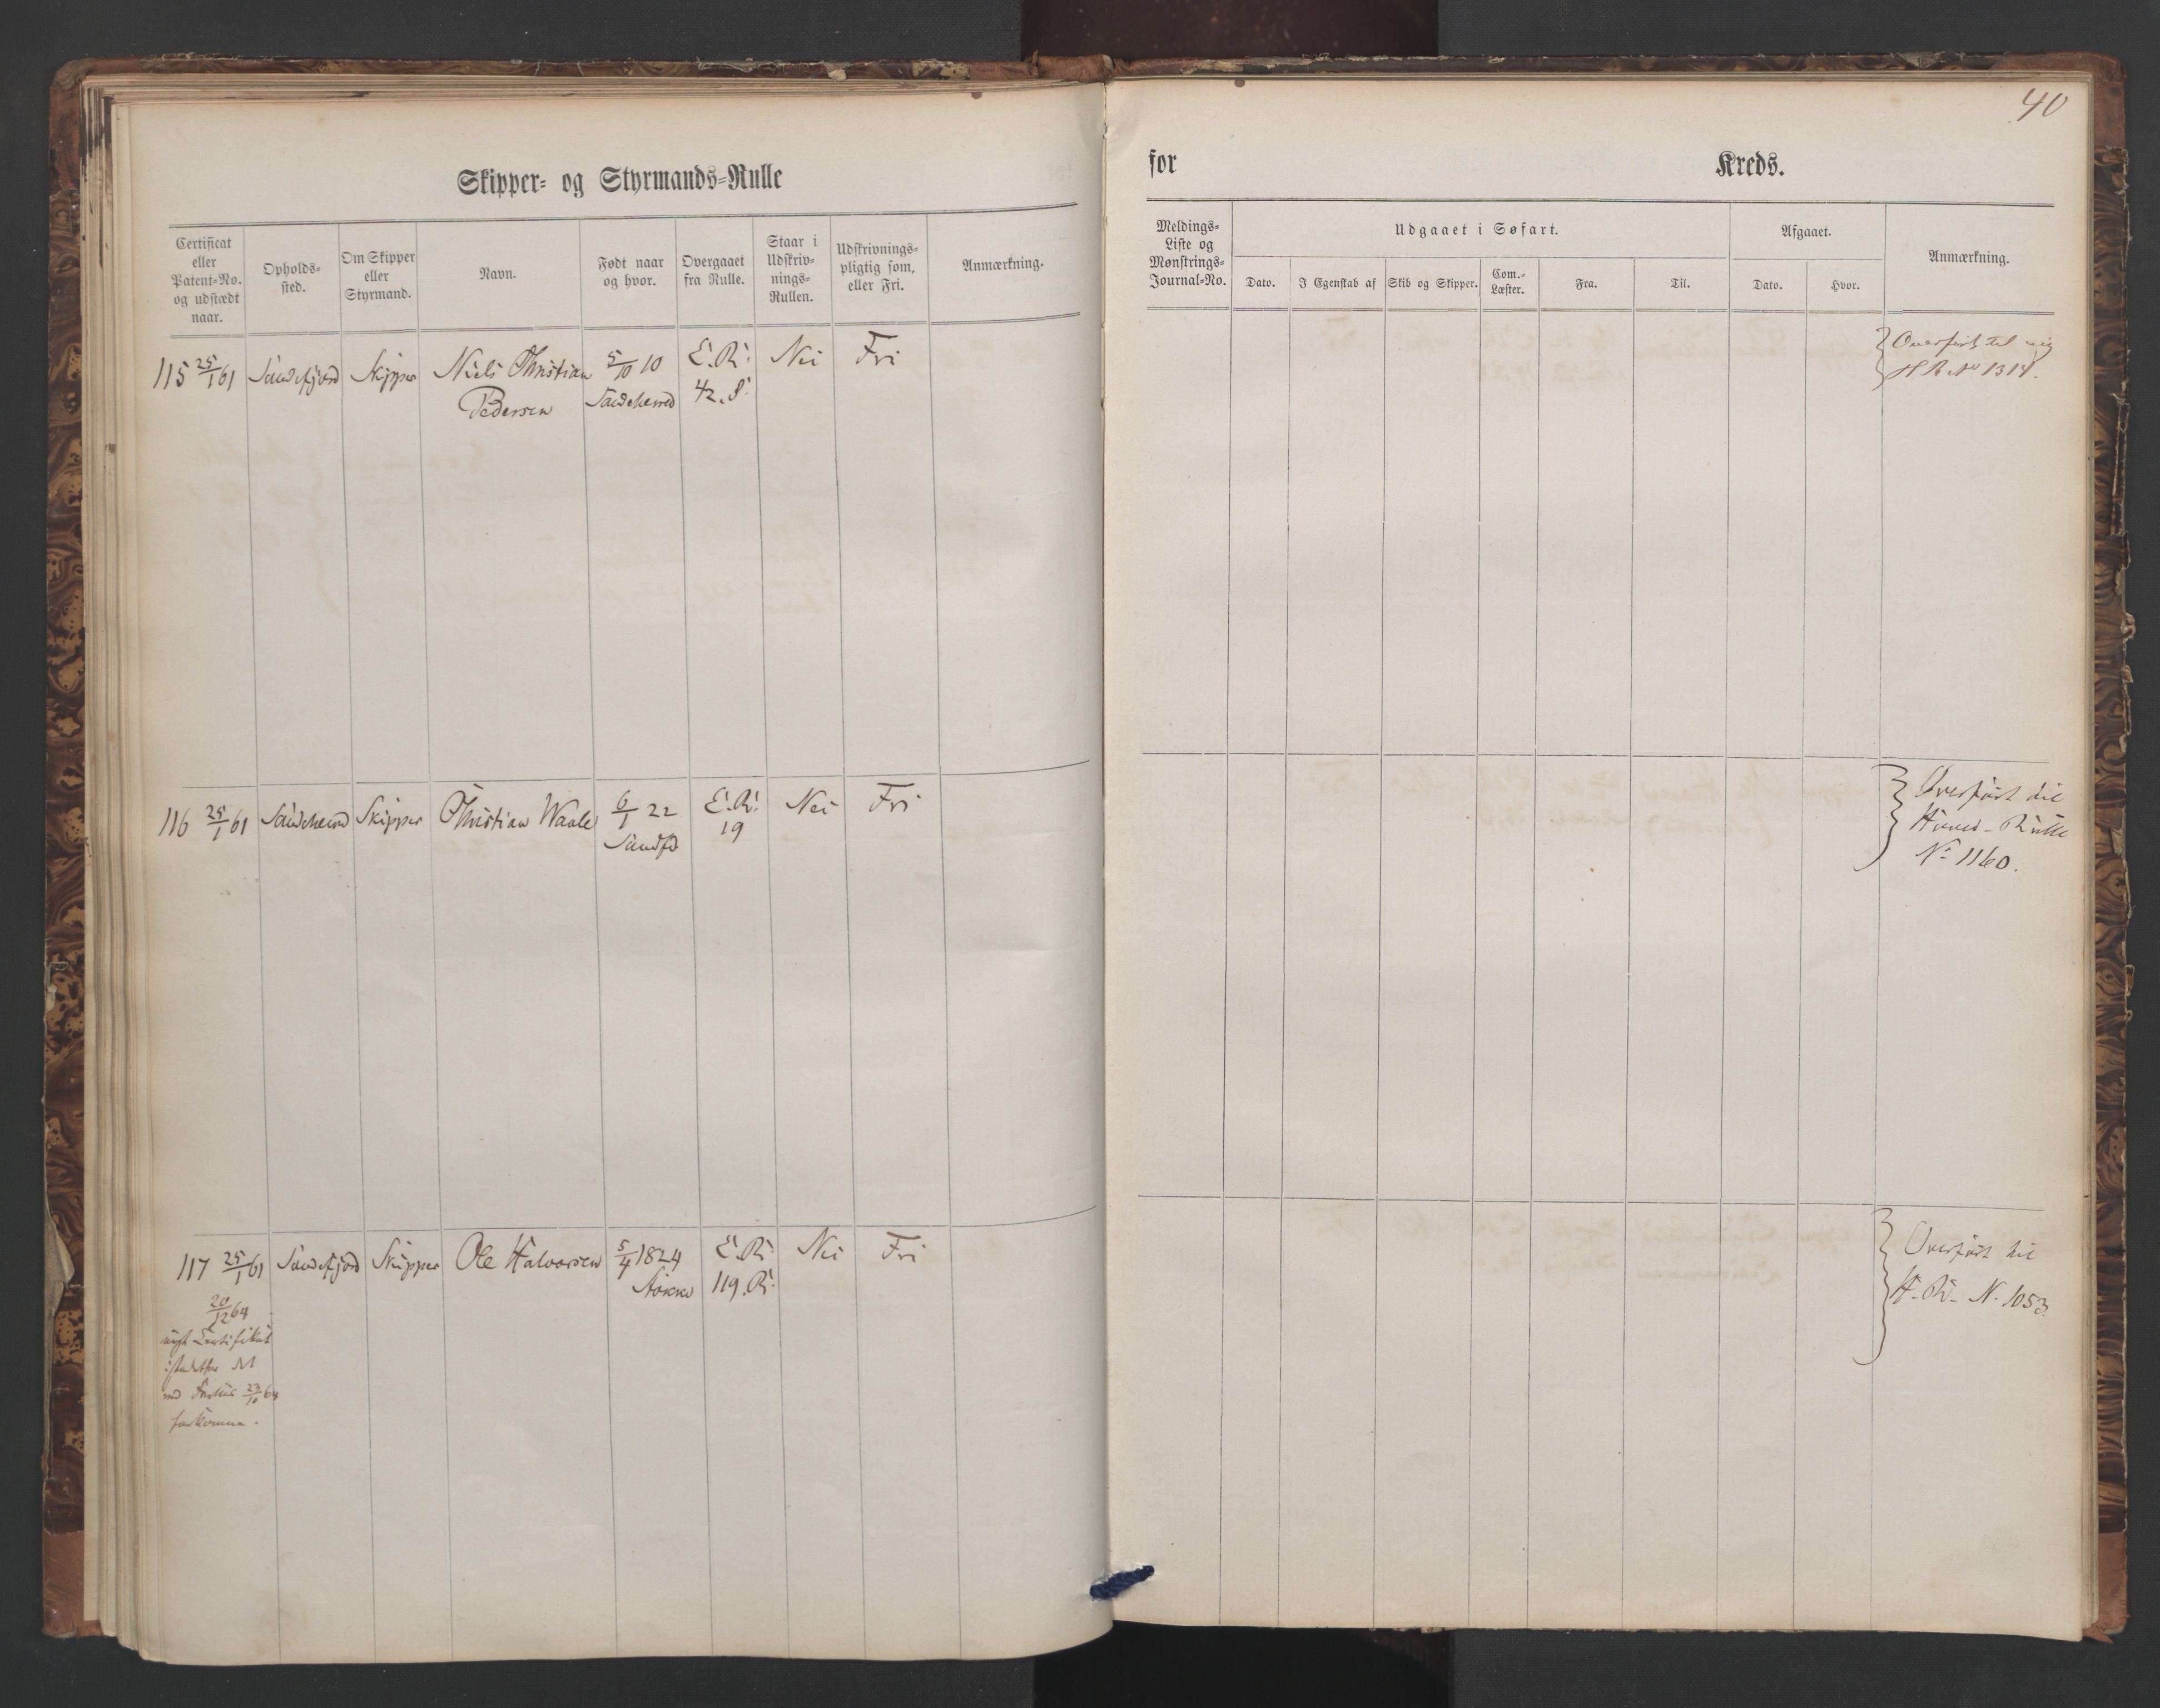 40
Skipper- og Styrmands-Rulle
for Kreds.
Certificat eller Patent-No. og udstædt naar.
Opholds-sted.
Om Skipper eller Styrmand.
Navn.
Født naar og hvor.
Overgaaet fra Rulle.
Staar i Udskriv-nings-Rullen.
Udskrivnings-pligtig som, eller Fri.
Anmærkning.
Meldings-Liste og Mønstrings-Journal-No.
Udgaaet i Søfart.
Dato.
I Egenskab af
Skib og Skipper.
Com.-Læster.
Fra.
Til.
Afgaaet.
Dato.
Hvor.
Anmærkning.
115 25/1 61 Sandefjord Skipper Niels Christian 5/10 10 E.R. Nei Fri
Pedersen Sandeherred 42.S.
Overført til ny
H R No 1314.
116 25/1 61 Sandeherred Skipper Christian Waale 6/1 22 E.R. Nei Fri
Sandfd 19
Overført til
Hoved-Rulle
No 1160.
117 25/1 61 Sandefjord Skipper Ole Halvorsen 5/4 1824 E.R. Nei Fri
Stokke 119.R.
20/12 64
nyt Certifikat
istedetfor det
ved Forlis 23/10 64
forkomne.
Overført til
H.R. N. 1053.